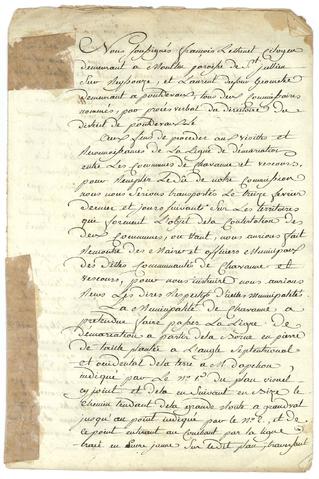 Nous soussignés francois Lestinet citoyen
demeurant a moulin paroisse de St. jullien
Sur Reyssouze, et Laurent dufour Geometre
demeurant a pontdevaux, tous deux Commissaires
nommés, par procès verbal du directoire du
district de pontdevaux
Aux fins de proceder aux visitte et
Reconnoissance de La Ligne de demarcation
entre Les Communes de Chavanne et vescours,
pour Remplir Le but de notre Commission
nous nous serions transportés Le treize fevrier
dernier, et jours suivants Sur Les territoires
qui forment L'objet dela Contestation des
deux Communes, ou étant, nous aurions fait
Remontre des Maires et officiers Municipaux
des dittes Communautés de Chavanne et
vescours, pour nous instruire nous aurions
Reçus Les dires Respectifs d'icelles Municipalités
La Municipalité de Chavanne, a
pretendue faire passer La Ligne de
demarcation a partir dela Borne en pierre
de taille plantée a L'angle Septentrional
et occidental dela terre a M. Dapchon
indiquée par Le No. 1er. du plan visuel
cy joint et dela en Suivant en Bize le
chemin tendant dela grande Route a grandval
jusqu'au point indiqué par le No. 2, et de
ce point entirant au Couchant par la ligne
tracé en Encre jaune Sur Ledit plan, traversant